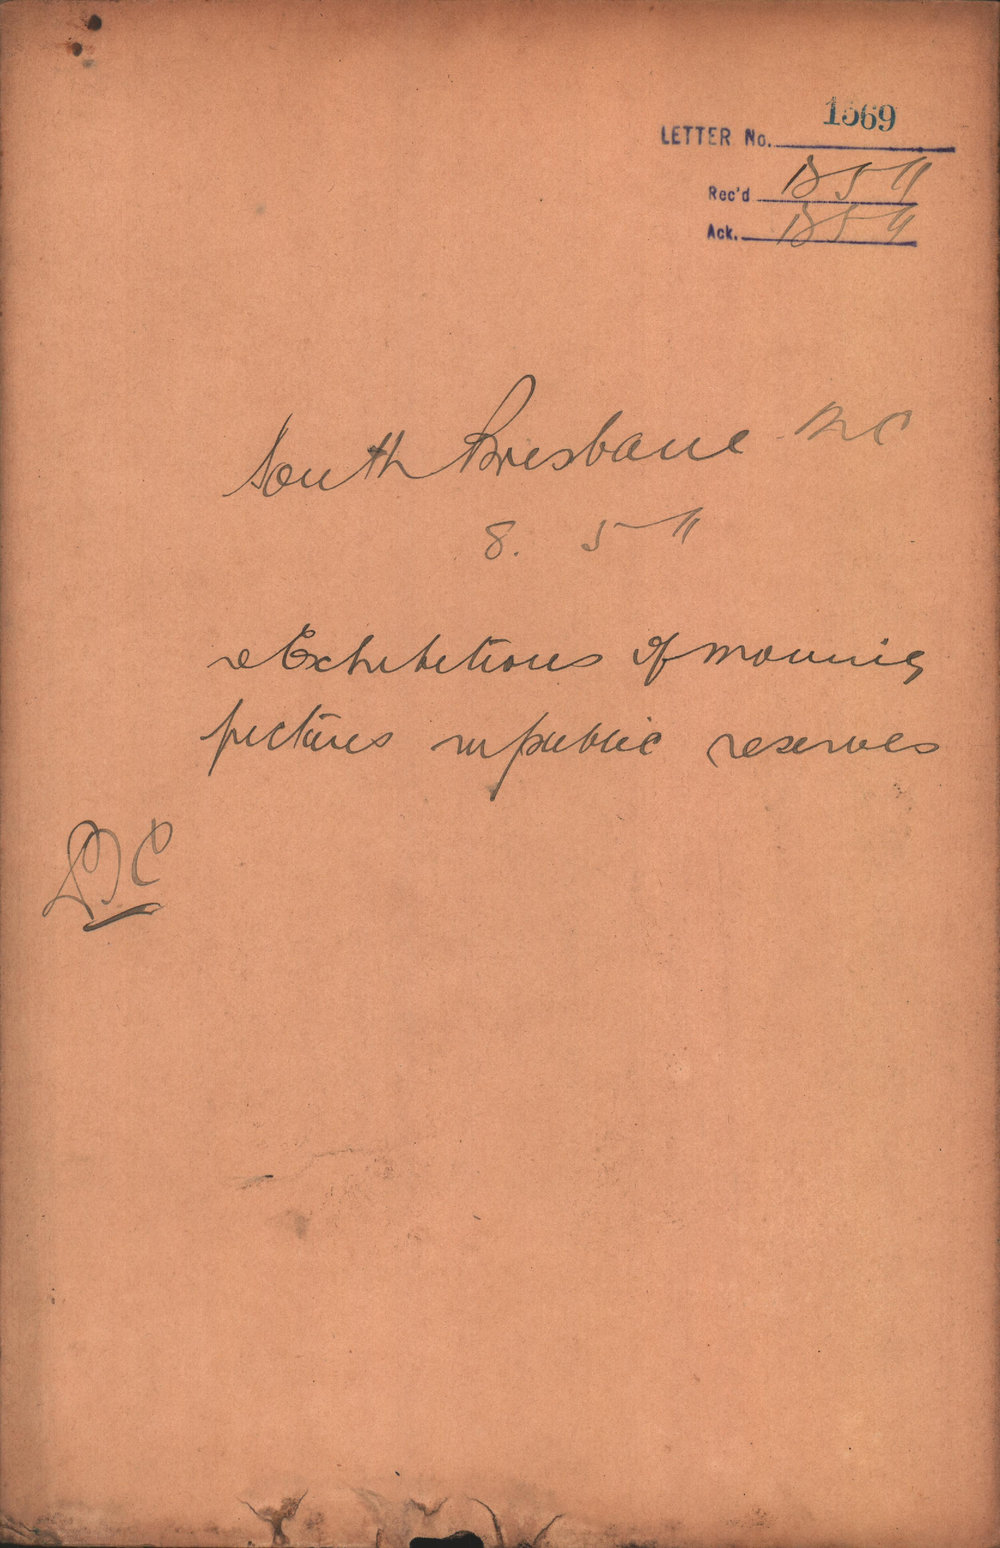 LETTER No. 1569
Rec'd 13 5 11
Ack. 13 5 11
South Brisbane
8. 5 11
re Exhibitions of moving
pictures in public reserves